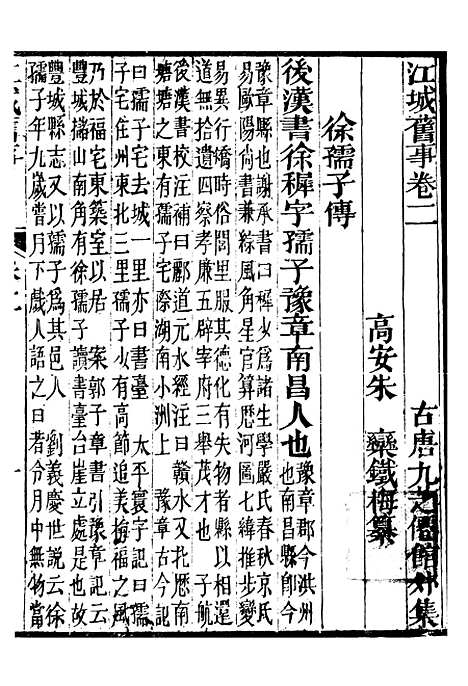 江城舊事卷二
古唐九芝僊館外集
高安朱 欒鐵梅纂
徐孺子傳
後漢書徐穉字孺子豫章南昌人也
豫章郡今洪州也南昌
豫章縣也謝承書曰穉少爲諸生學嚴氏春秋京氏
易歐陽尚書兼綜風角星官算歷河圖七緯推步變
易異行矯時俗閭里服其德化有失物者縣以相還
道無拾遺四察孝廉五辟宰府三舉茂才也 子航
後漢書校注補曰酈道元水經注曰贑水又北歷南
塘塘之東有孺子宅際湖南小洲上 豫章古今記
曰孺子宅去城一里亦曰書臺 太平寰宇記曰孺
子宅在州東北三里孺子少有高節追美梅福之風
乃於福宅東築室以居 案郭子章書引豫章記云
豐城槠山南角有徐孺子讀書臺台崖立處是也故
豐城縣志又以孺子爲其邑人 劉義慶世說云徐
孺子年九歲嘗月下戲人語之曰若令月中無物當